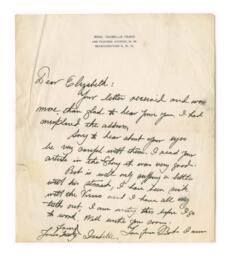 MRS. ISABELLE
WASHINGTON
Dear Elizabeth:
Your letter received and was
more than glad to hear from you. I had
misplaced the address.
Sorry to hear about your eyes
be very careful with them. I read your
article in the Story it was very good.
Bert is well only suffering a little
with his stomach, I have been sick
with the and I have all my
teeth out. I am writing this before I go
to work. Will write you soon.
Isabelle